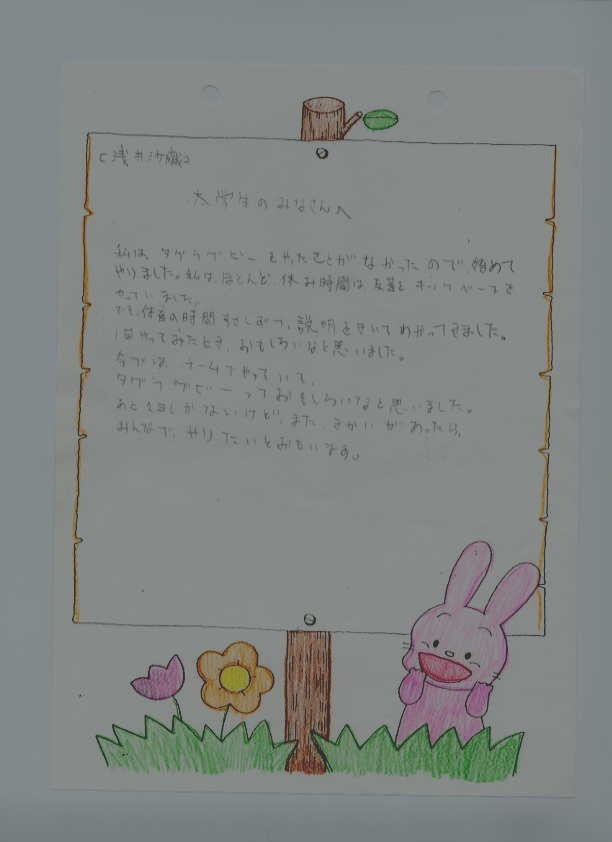 大学生のみなさんへ
私は、タグラグビーをやったことがなかったので、始めて
やりました。私は、ほとんど、休み時間は友達とキックベースを
やっていました。
でも、体育の時間すこしずつ、説明をきいてわかってきました。
1回やってみたとき、おもしろいなと思いました。
今では、チームでやっていて、
タグラグビーっておもしろいなと思いました。
あと 1回しかないけど、また、きかいがあったら、
みんなで、やりたいとおもいます。